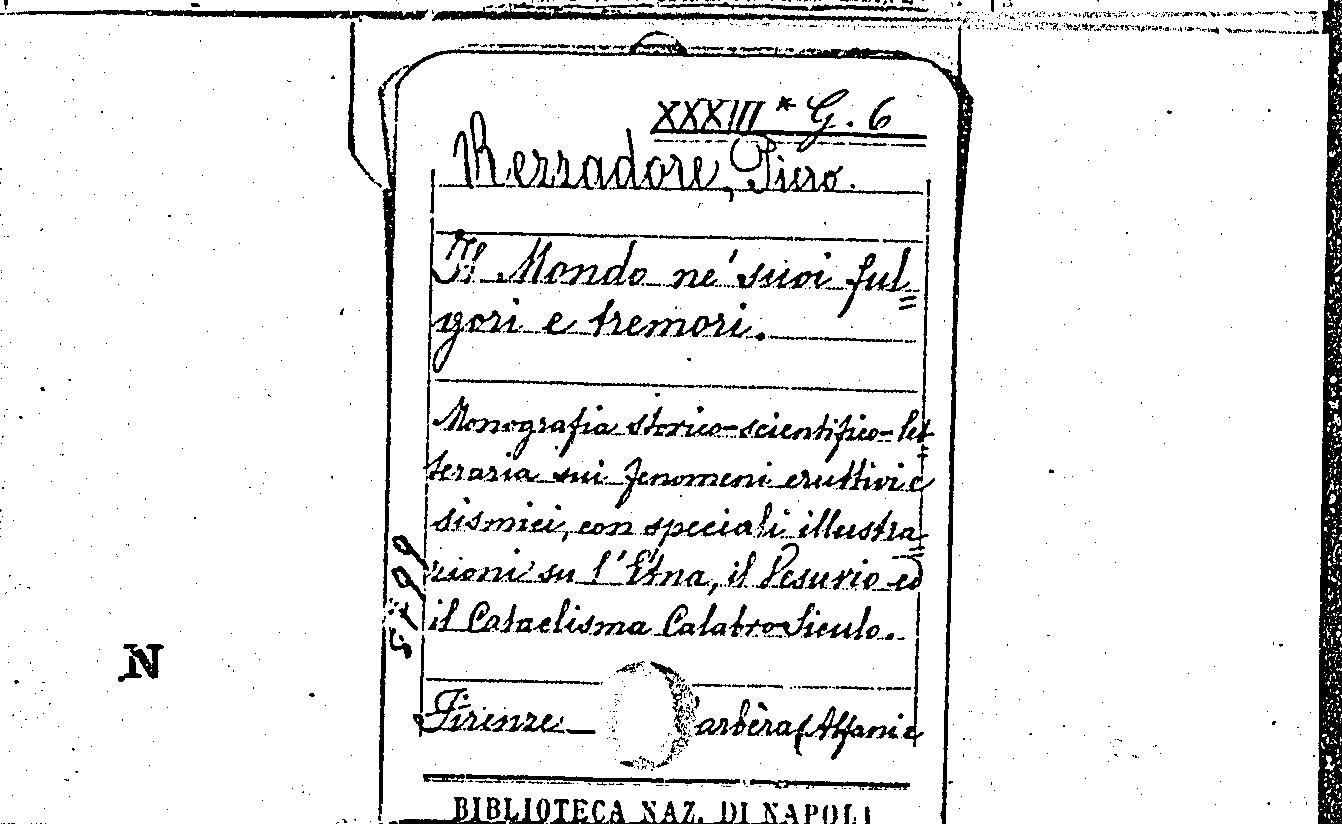 XXXIII * G. 6
Rezzadore, Piero.
Il Mondo ne' suoi ful=
gori e tremori.
Monografia storico-scientifico-let=
teraria sui fenomeni eruttivi e
sismici, con speciali illustra=
zioni su l'Etna, il Vesuvio ed
il Cataclisma Calabro-Siculo.
Firenze — arbèra (Alfani e
BIBLIOTECA NAZ. DI NAPOLI
N